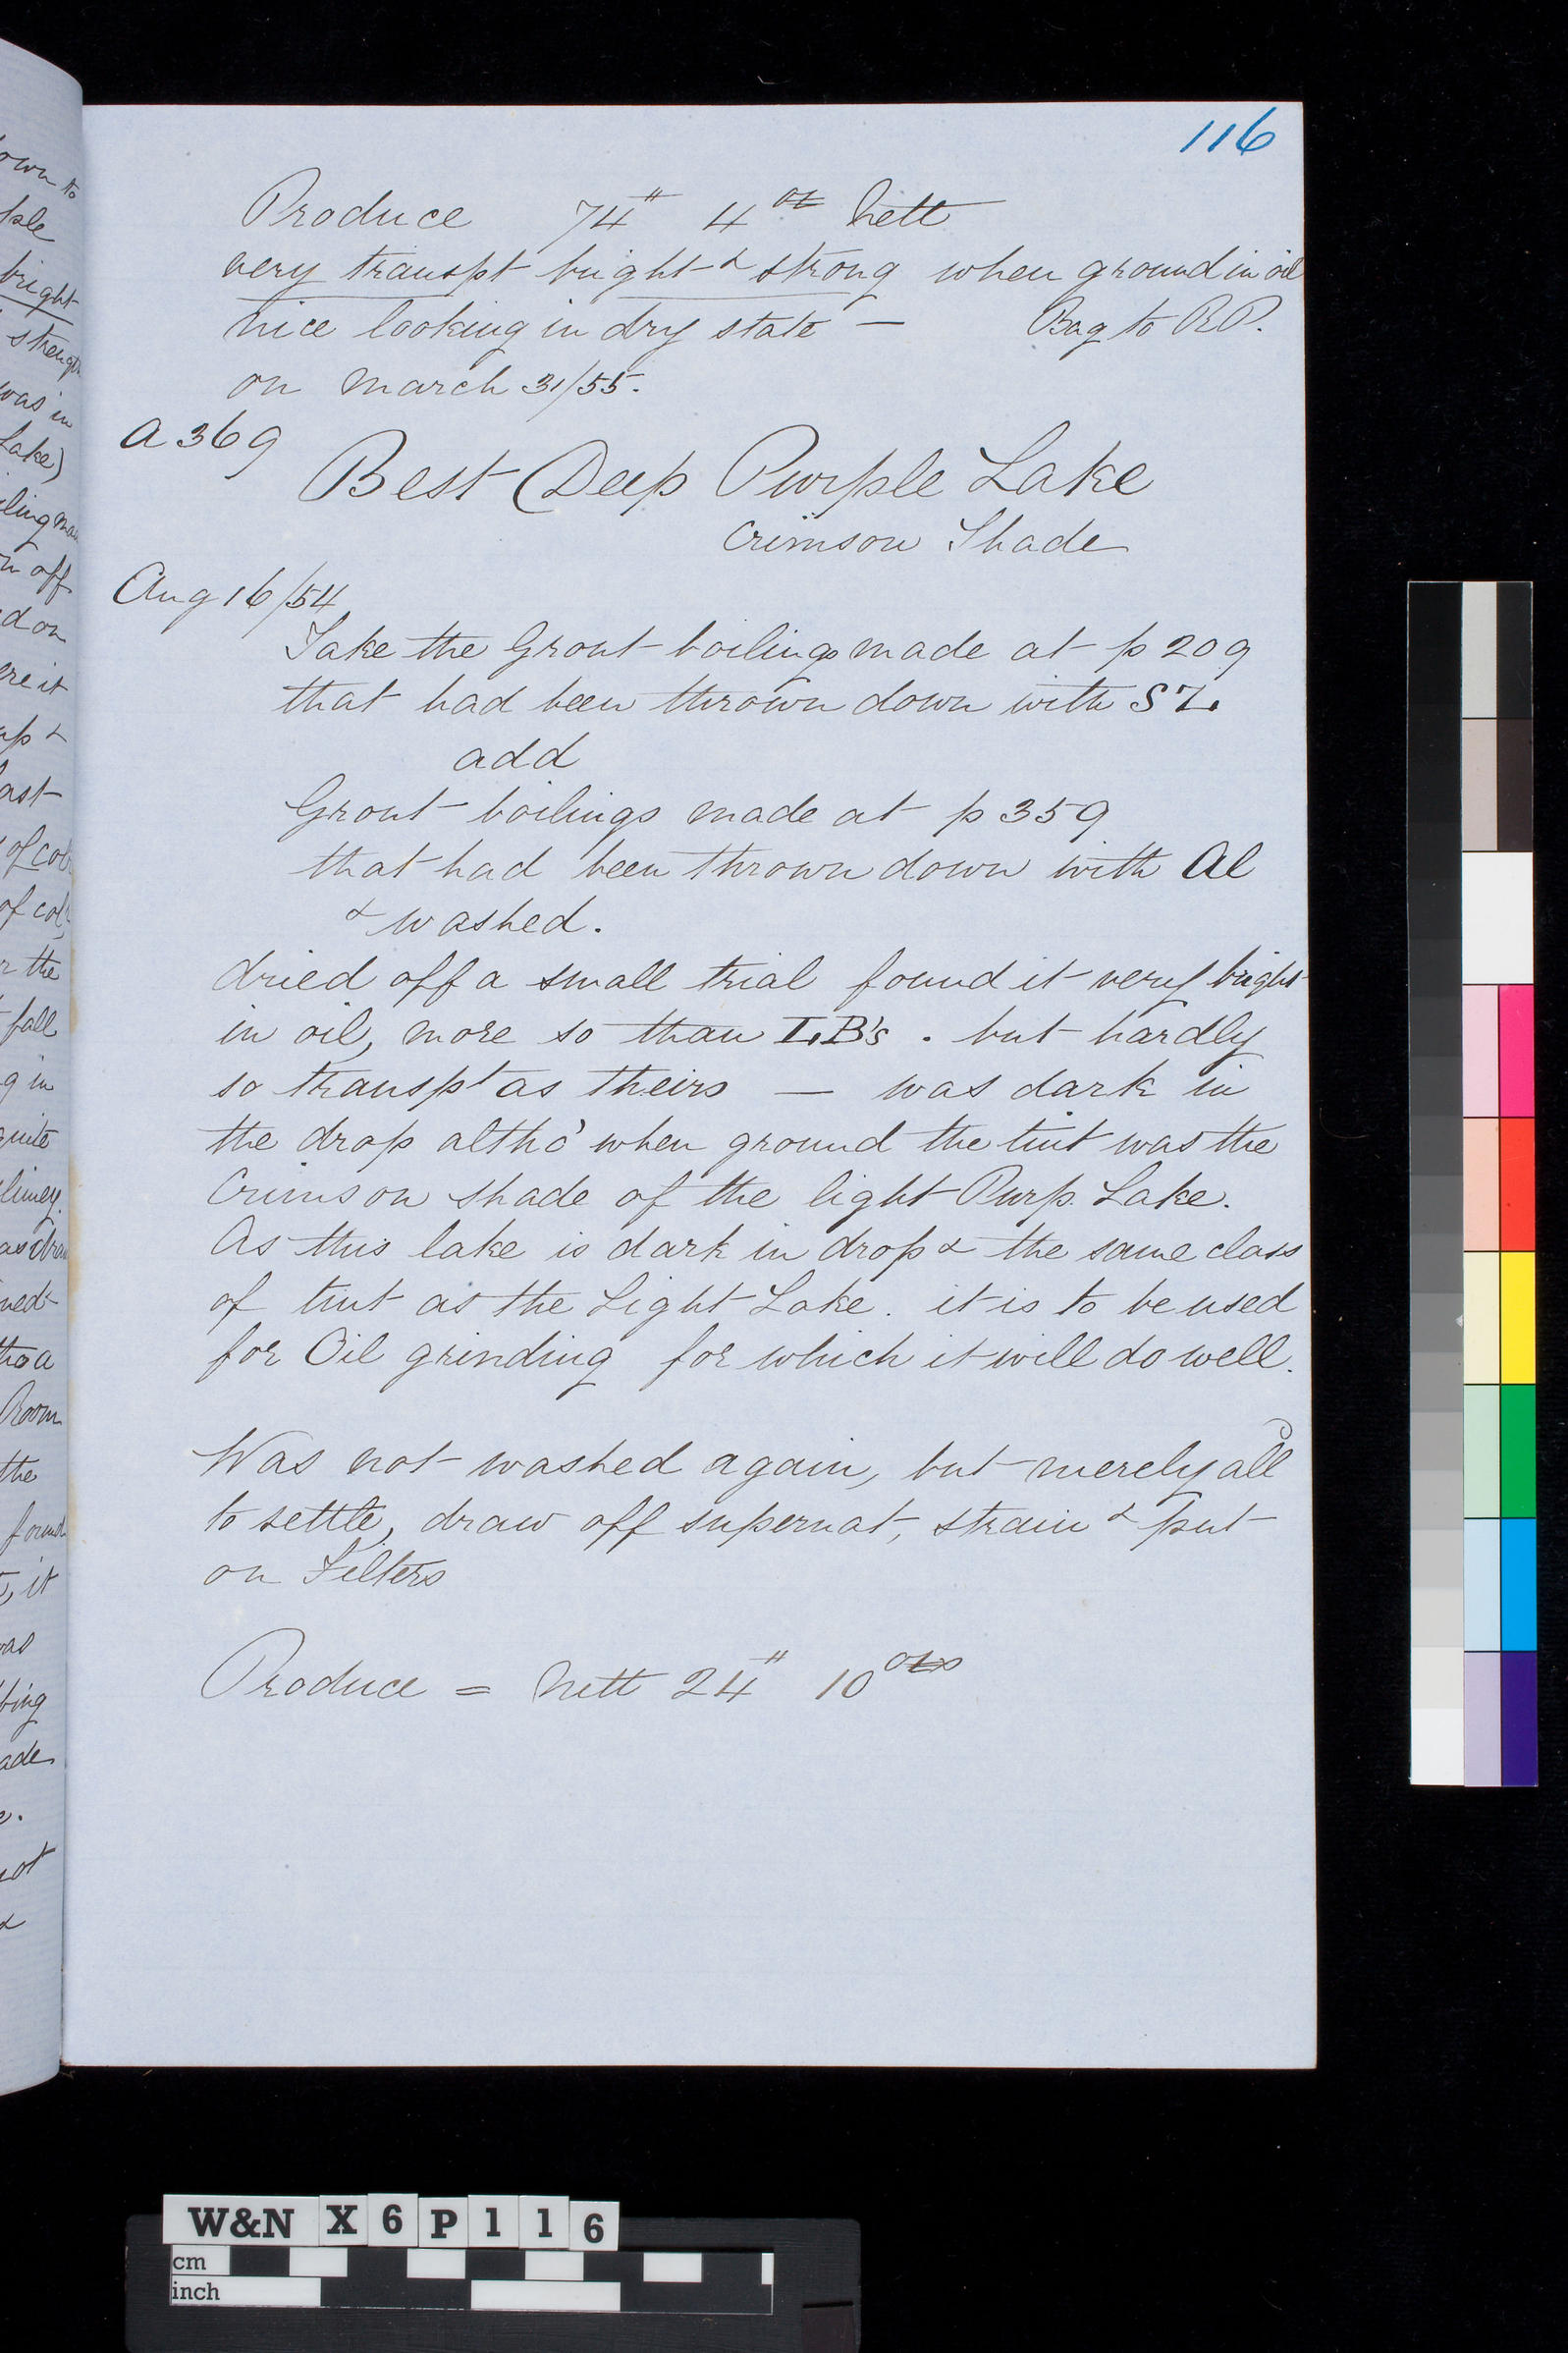 116
Produce 74" 4 oz Nett
very transpt bright & strong when ground in oil
nice looking in dry state — Bag to RP.
on March 31/55.
A 369
Best Deep Purple Lake
Crimson Shade
Aug 16/54
Take the Grout boilings made at p 209
that had been thrown down with SZ.
add
Grout boilings made at p 359
that had been thrown down with Al
& washed.
dried off a small trial found it very bright
in oil, more so than LB's. but hardly
so transpt as theirs — was dark in
the drop altho' when ground the tint was the
Crimson shade of the light Purp. Lake.
As this lake is dark in drop & the same class
of tint as the Light Lake. it is to be used
for Oil grinding for which it will do well.
Was not washed again, but merely alld
to settle, draw off supernat, strain & put
on Filters
Produce = Nett 24" 10 ozs
own to
bright
was in
Lake)
off
d on
ere it
up &
of col
of col
the
fall
g in
quite
limey.
Room
the
found
it
not
&
W&N X 6 P 1 1 6
cm
inch